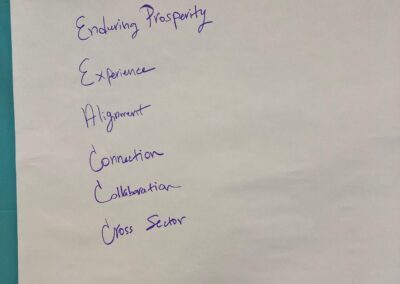 Enduring Prosperity
Experience
Alignment
Connection
Collaboration
Cross Sector